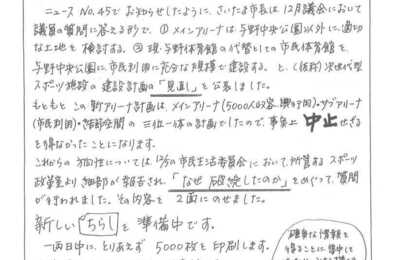 ニュース No.45で お知らせしたように、さいたま市長は12月議会において
議員の質問に答える形で、①メインアリーナは与野中央公園以外に、適切
な土地を検討する。②現・与野体育館の代替としての市民体育館を
与野中央公園に、市民利用に充分な規模で建設する。と、(仮称)次世代型
スポーツ施設の建設計画の「見直し」を公表しました。
もともと この新アリーナ計画は、メインアリーナ(5000人収容、)・サブアリーナ
(市民利用)・の三位一体の計画でしたので、事実上 中止せざる
を得なかったことになります。
これからの方向性については、の市民生活委員会において、所管するスポーツ
政策室より細部が報告され、「なぜ破綻したのか」をめぐって、質問
が行われました。その内容を 2面にのせました。
新しい ちらし を 準備中です。
一両日中に、とりあえず 5000枚を 印刷します。
確実な情報を
得ることに集中して